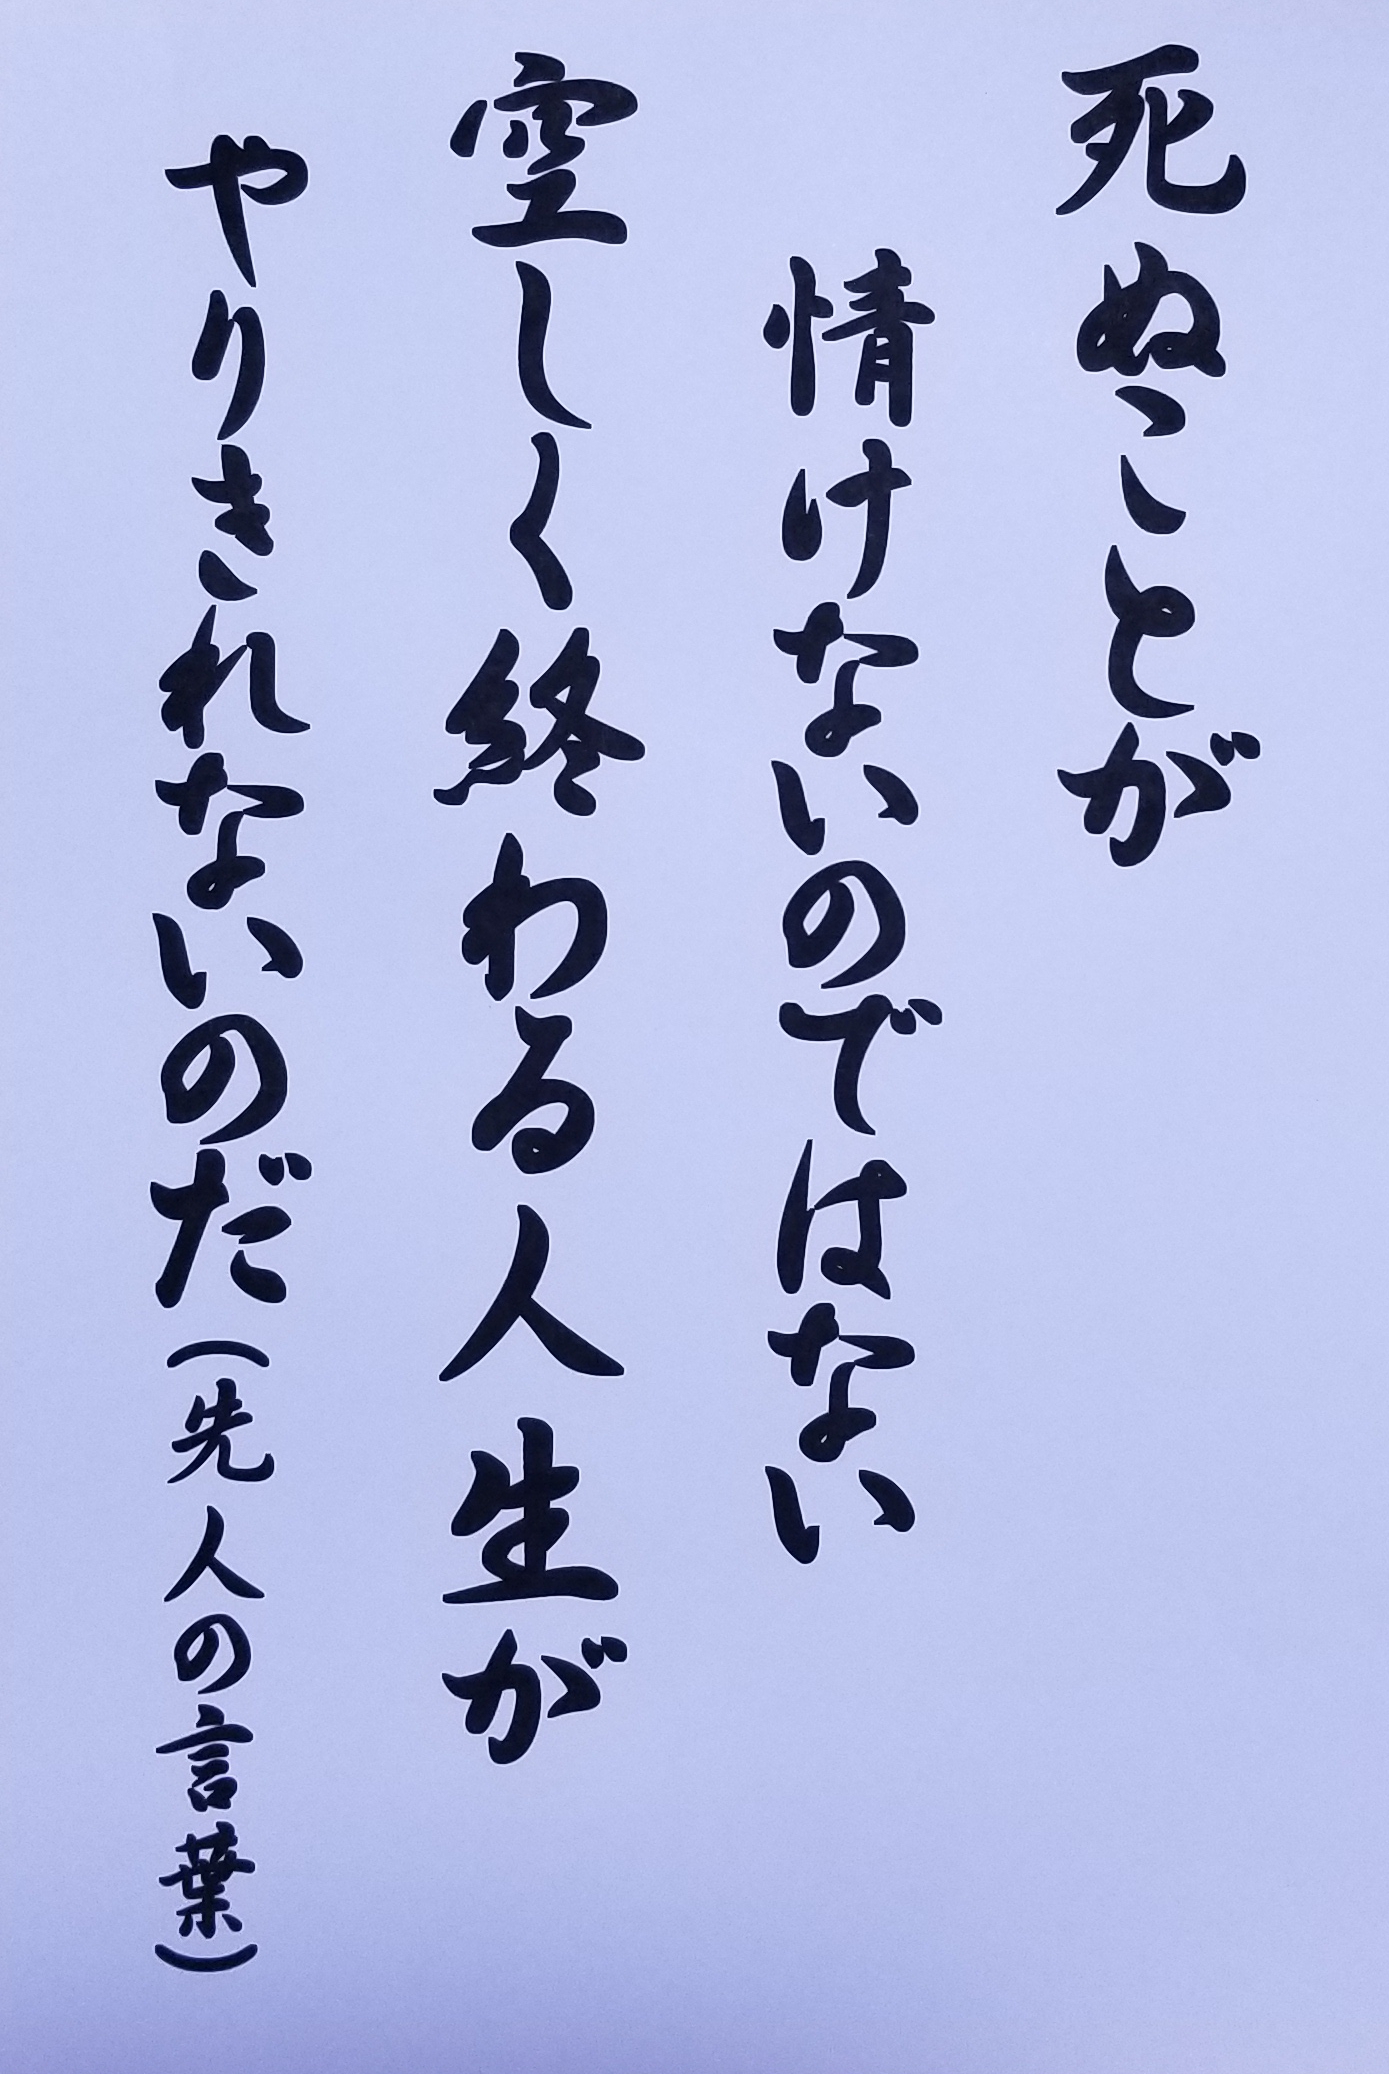 死ぬことが
情けないのではない
空しく終わる人生が
やりきれないのだ(先人の言葉)